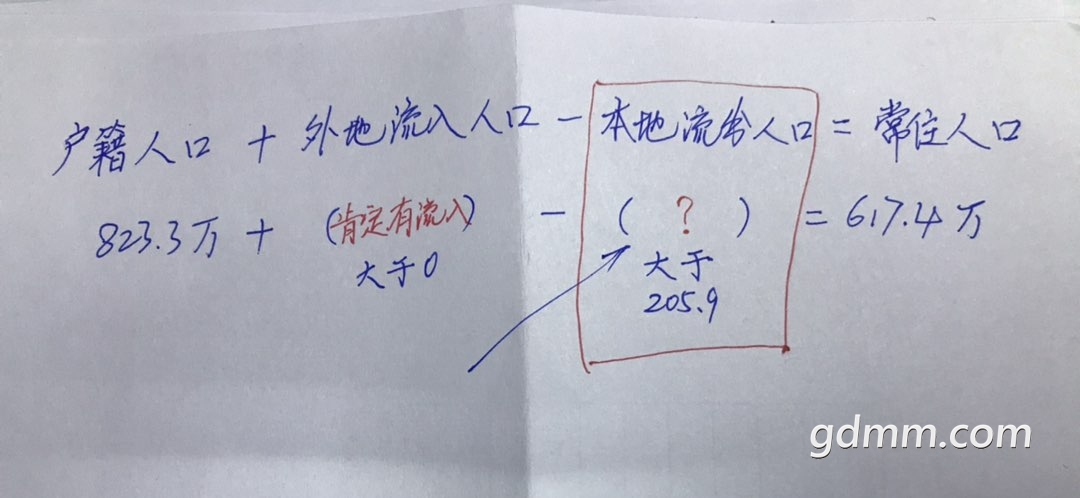 户籍人口 + 外地流入人口 - 本地流出人口 = 常住人口
823.3万 + (肯定有流入) - ( ? ) = 617.4万
大于0 大于
205.9
gdmm.com